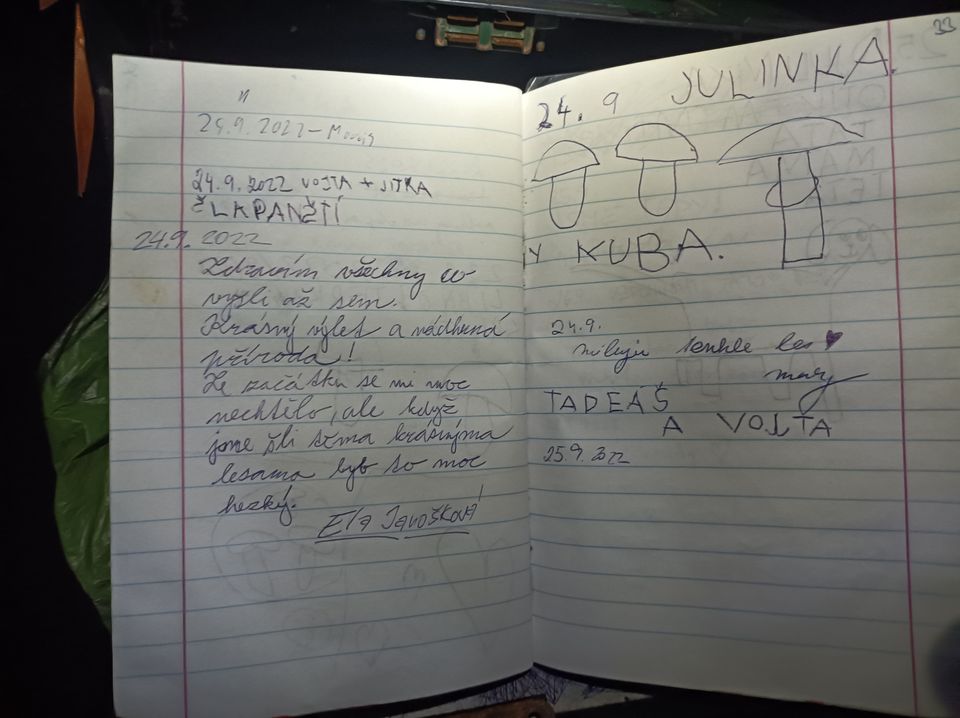 "
24.9.2022 -
24.9.2022 VOJTA + JITKA
ŠLAPANŽTÍ
24.9. 2022
Zdravím všechny co
vyšli až sem.
Krásný výlet a nádherná
příroda!
Ze začátku se mi moc
nechtělo, ale když
jsme šli těma krásnýma
lesama byl to moc
hezký.
Ela Janošková
33
24. 9 JULINKA.
Y KUBA.
24.9.
miluju tenhle les ♥
mary
TADEÁŠ
A VOJTA
25.9.2022